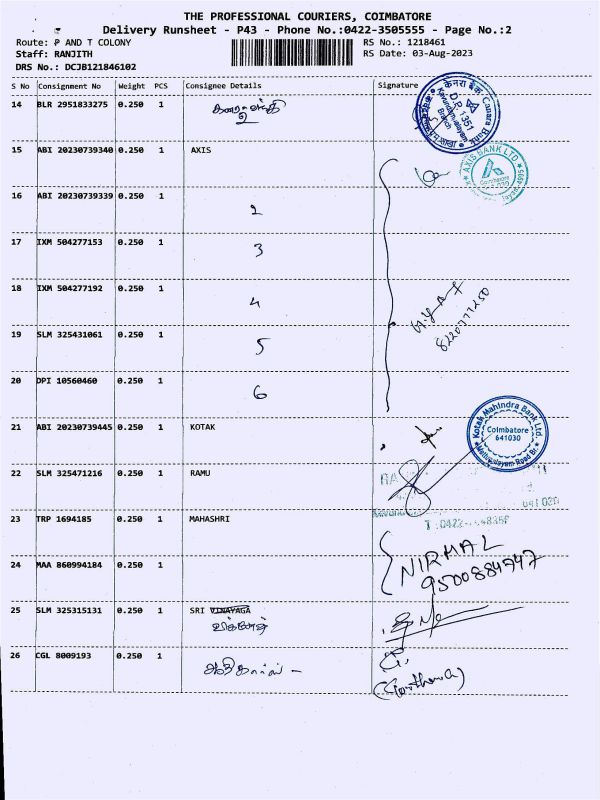 THE PROFESSIONAL COURIERS, COIMBATORE
Delivery Runsheet - P43 - Phone No.:0422-3505555 - Page No.:2
Route: P AND T COLONY RS No.: 1218461
Staff: RANJITH RS Date: 03-Aug-2023
DRS No.: DCJB121846102
S No Consignment No Weight PCS Consignee Details Signature
14 BLR 2951833275 0.250 1
15 ABI 20230739340 0.250 1 AXIS
16 ABI 20230739339 0.250 1 2
17 IXM 504277153 0.250 1 3
18 IXM 504277192 0.250 1 4
19 SLM 325431061 0.250 1 5
20 DPI 10560460 0.250 1 6
21 ABI 20230739445 0.250 1 KOTAK
22 SLM 325471216 0.250 1 RAMU
23 TRP 1694185 0.250 1 MAHASHRI
24 MAA 860994184 0.250 1
25 SLM 325315131 0.250 1 SRI VINAYAGA
26 CGL 8009193 0.250 1
केनरा बैंक Canara Bank
D.P. 1351
Branch
AXIS BANK LTD
8220777250
Kotak Mahindra Bank Ltd.
Coimbatore
641030
NIRMAL